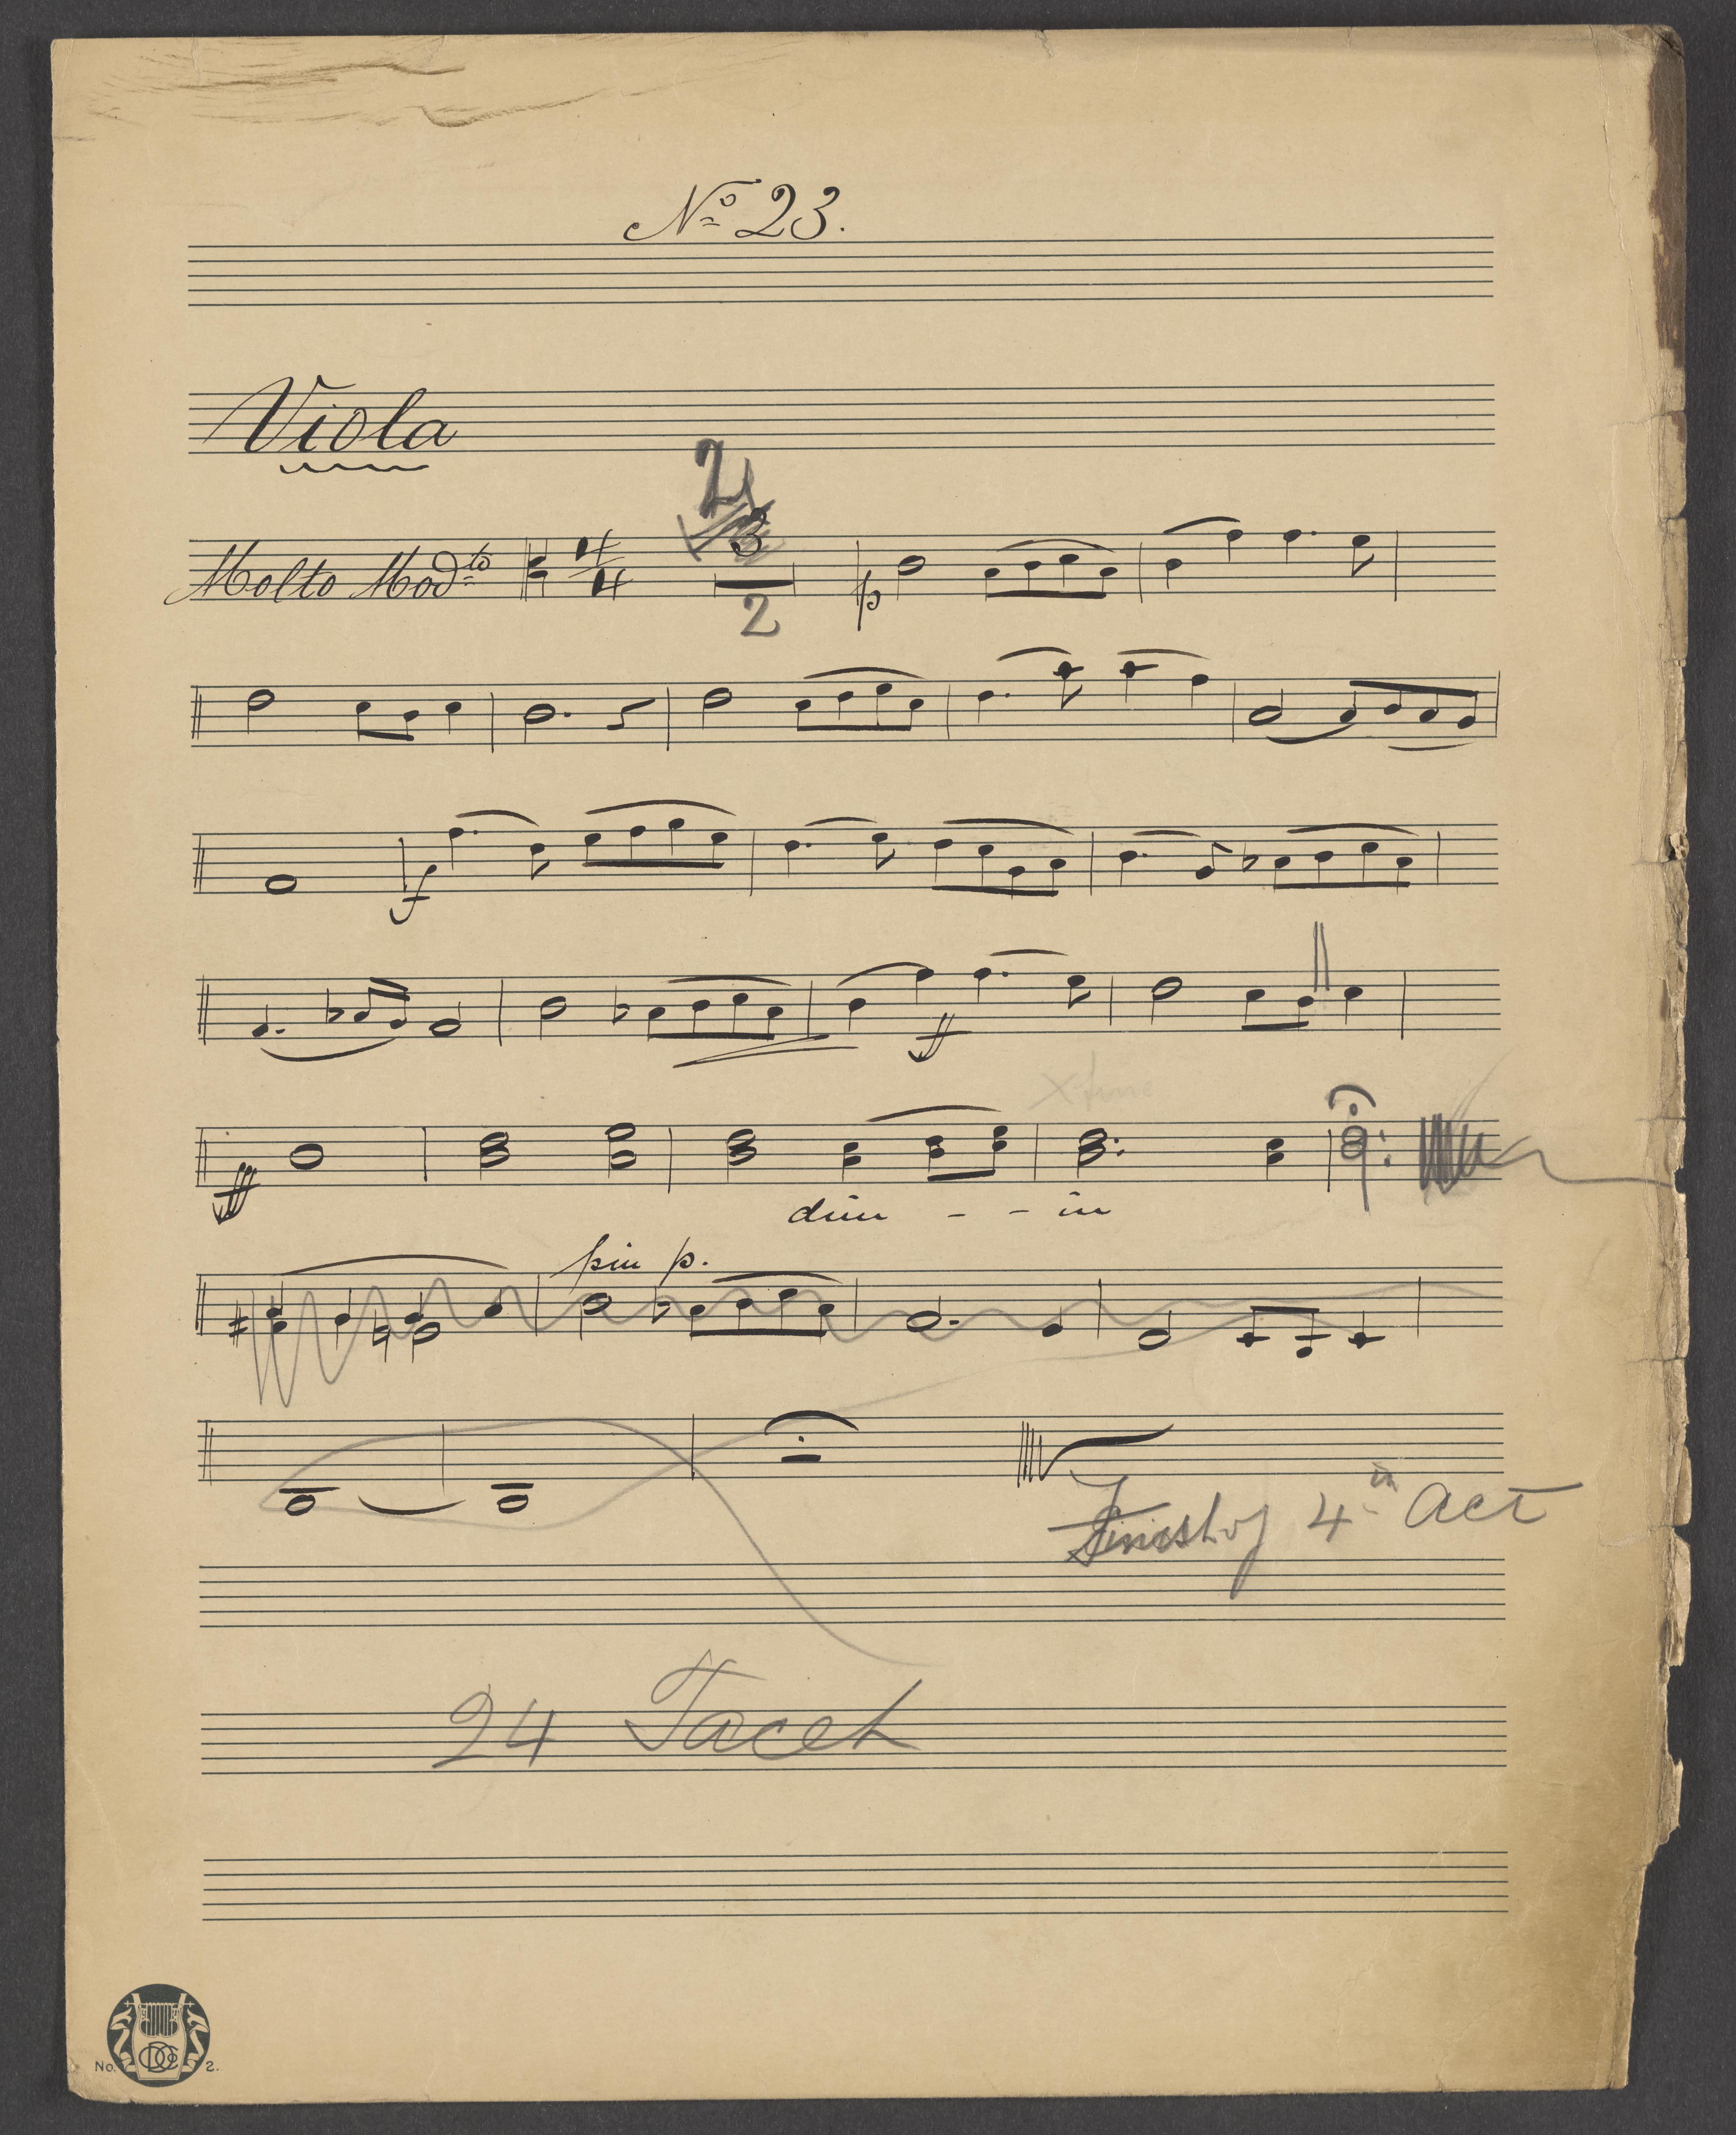 No 23.
Viola
2
3
Molto Modto 4 4
p
2
f
ff
fff
dim - - in
piu p.
Finis of 4th Act
24 Tacet
No. 2.